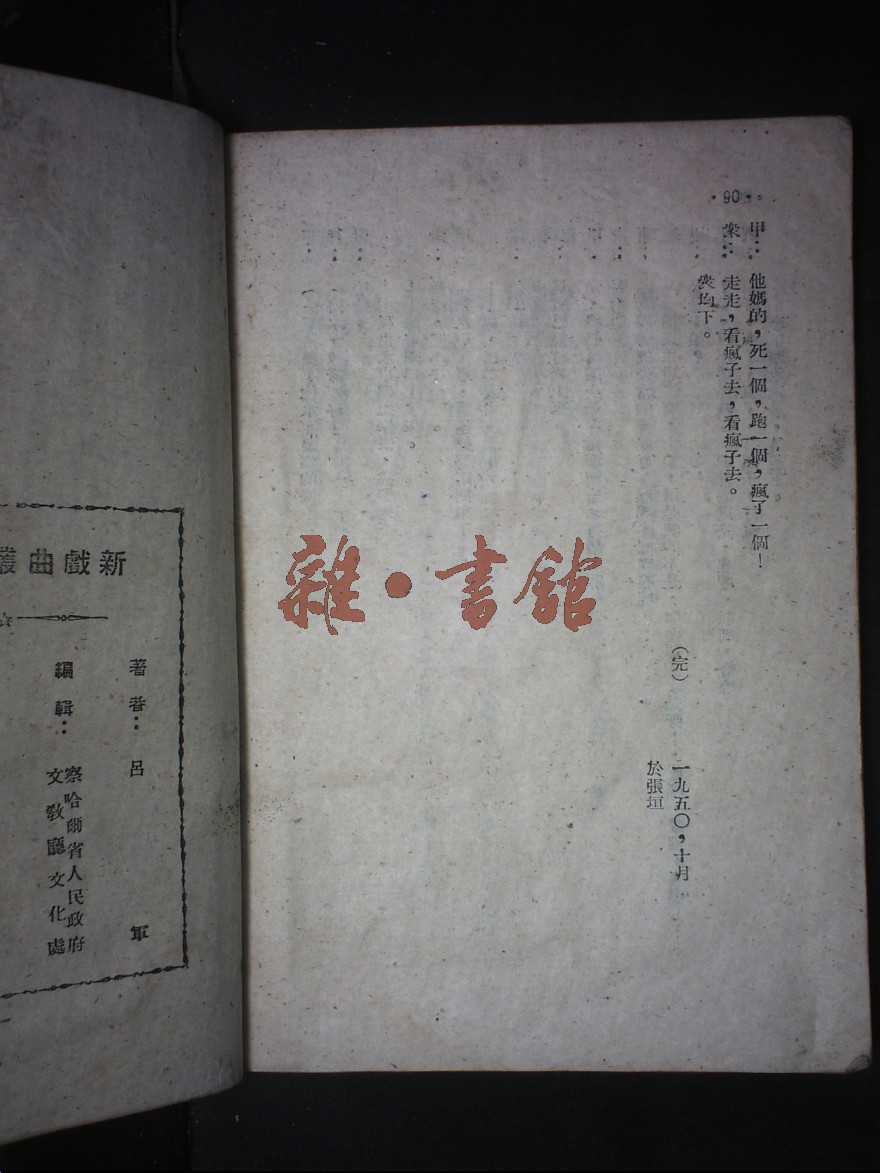 ·90·
甲：他媽的，死一個，跑一個，瘋了一個！
衆：走走，看瘋子去，看瘋子去。
衆均下。
（完）
一九五〇，十月
於張垣
雜·書館
新戲曲叢
著者：呂軍
編輯：察哈爾省人民政府
文敎廳文化處